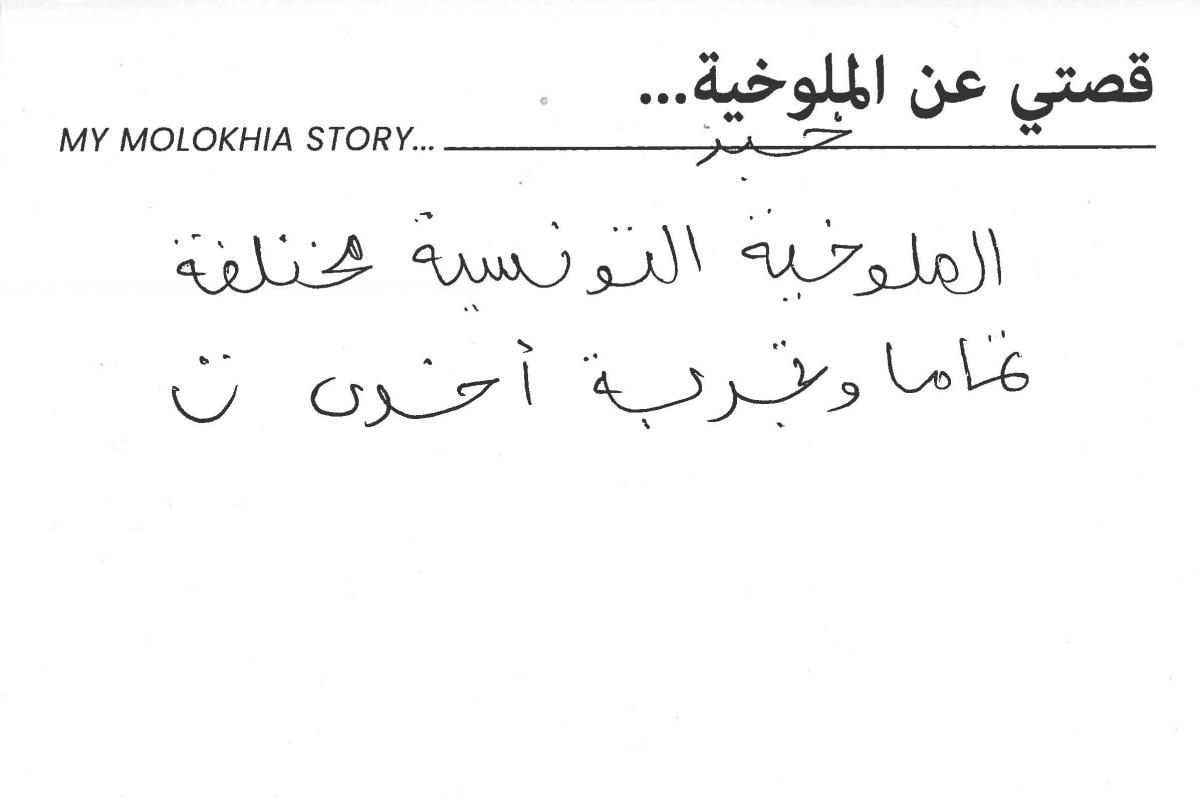 قصتي عن الملوخية...
MY MOLOKHIA STORY...
الملوخية التونسية مختلفة
تماما وتجربة أخرى ت